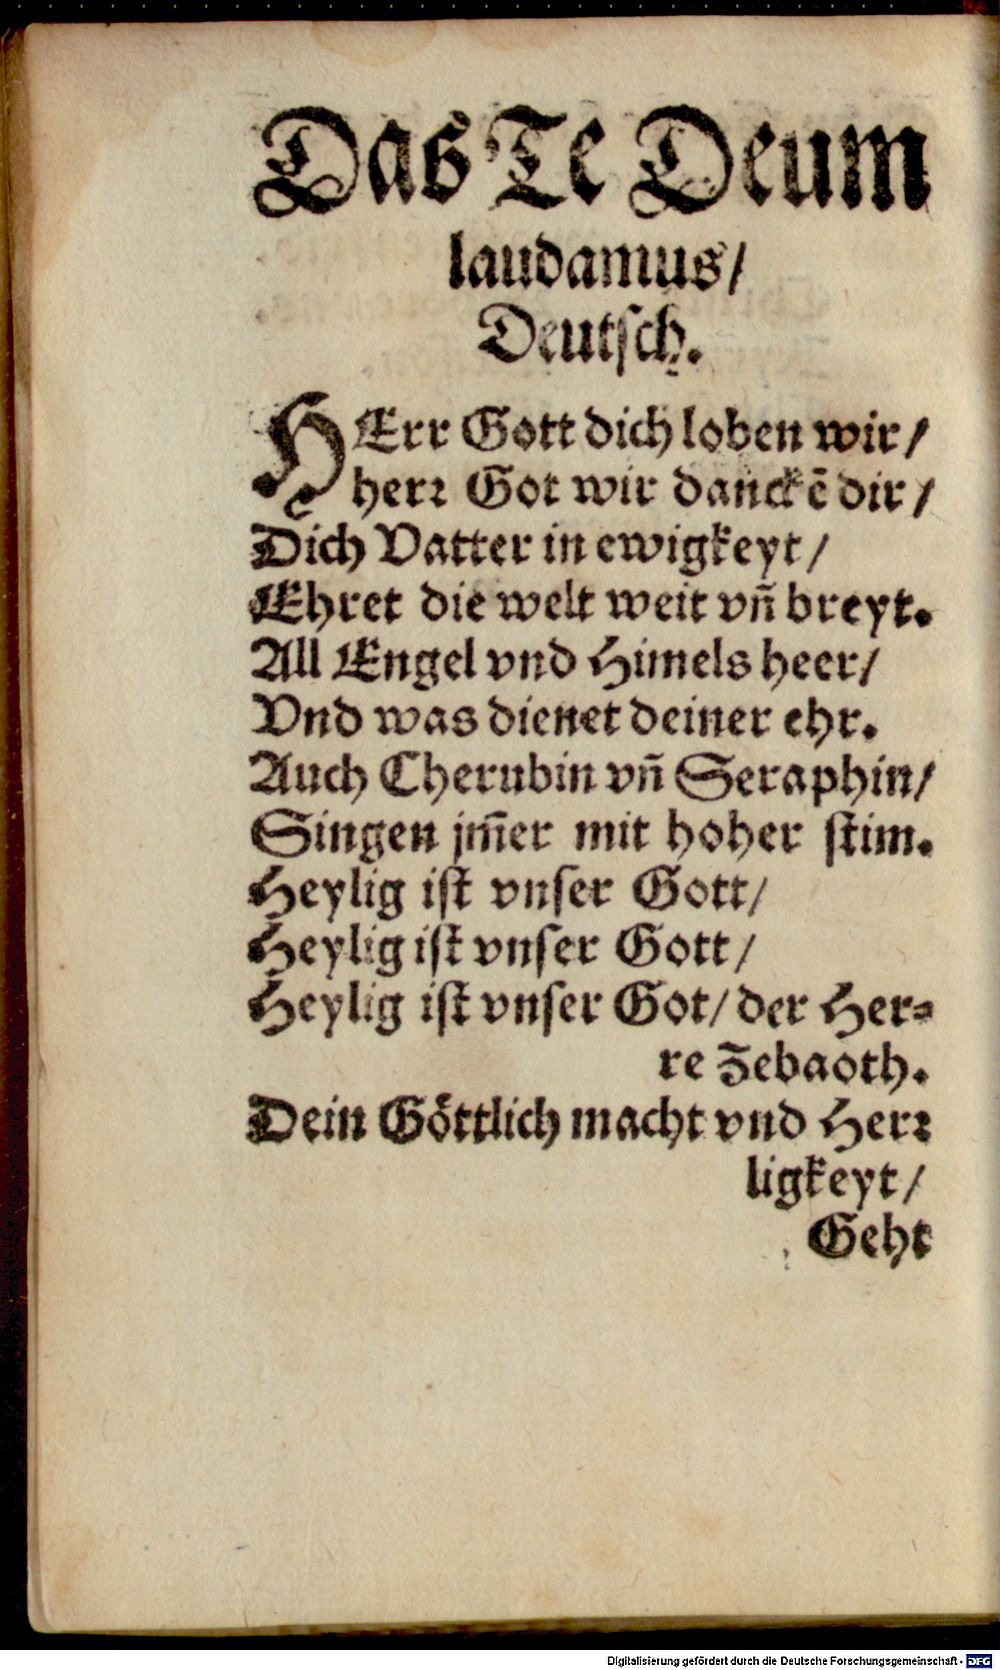 Das Te Deum
laudamus/
Deutsch.
HErr Gott dich loben wir/
herr Got wir danckẽ dir/
Dich Vatter in ewigkeyt/
Ehret die welt weit vñ breyt.
All Engel vnd Himels heer/
Vnd was dienet deiner ehr.
Auch Cherubin vñ Seraphin/
Singen jm̃er mit hoher stim.
Heylig ist vnser Gott/
Heylig ist vnser Gott/
Heylig ist vnser Got/ der Her-
re Zebaoth.
Dein Göttlich macht vnd Herr
ligkeyt/
Geht
Digitalisierung gefördert durch die Deutsche Forschungsgemeinschaft - DFG